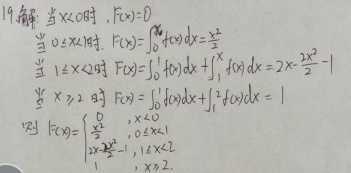 19.解: 当 x<0时, F(x)=0
当 0≤x<1时. F(x)=∫₀ˣ f(x)dx=x²/2
当 1≤x<2时 F(x)=∫₀¹ f(x)dx+∫₁ˣ f(x)dx=2x-2x²/2-1
当 x≥2 时 F(x)=∫₀¹ f(x)dx+∫₁² f(x)dx=1
则 F(x)={ 0 , x<0
x²/2 , 0≤x<1
2x-2x²/2-1 , 1≤x<2
1 , x≥2.